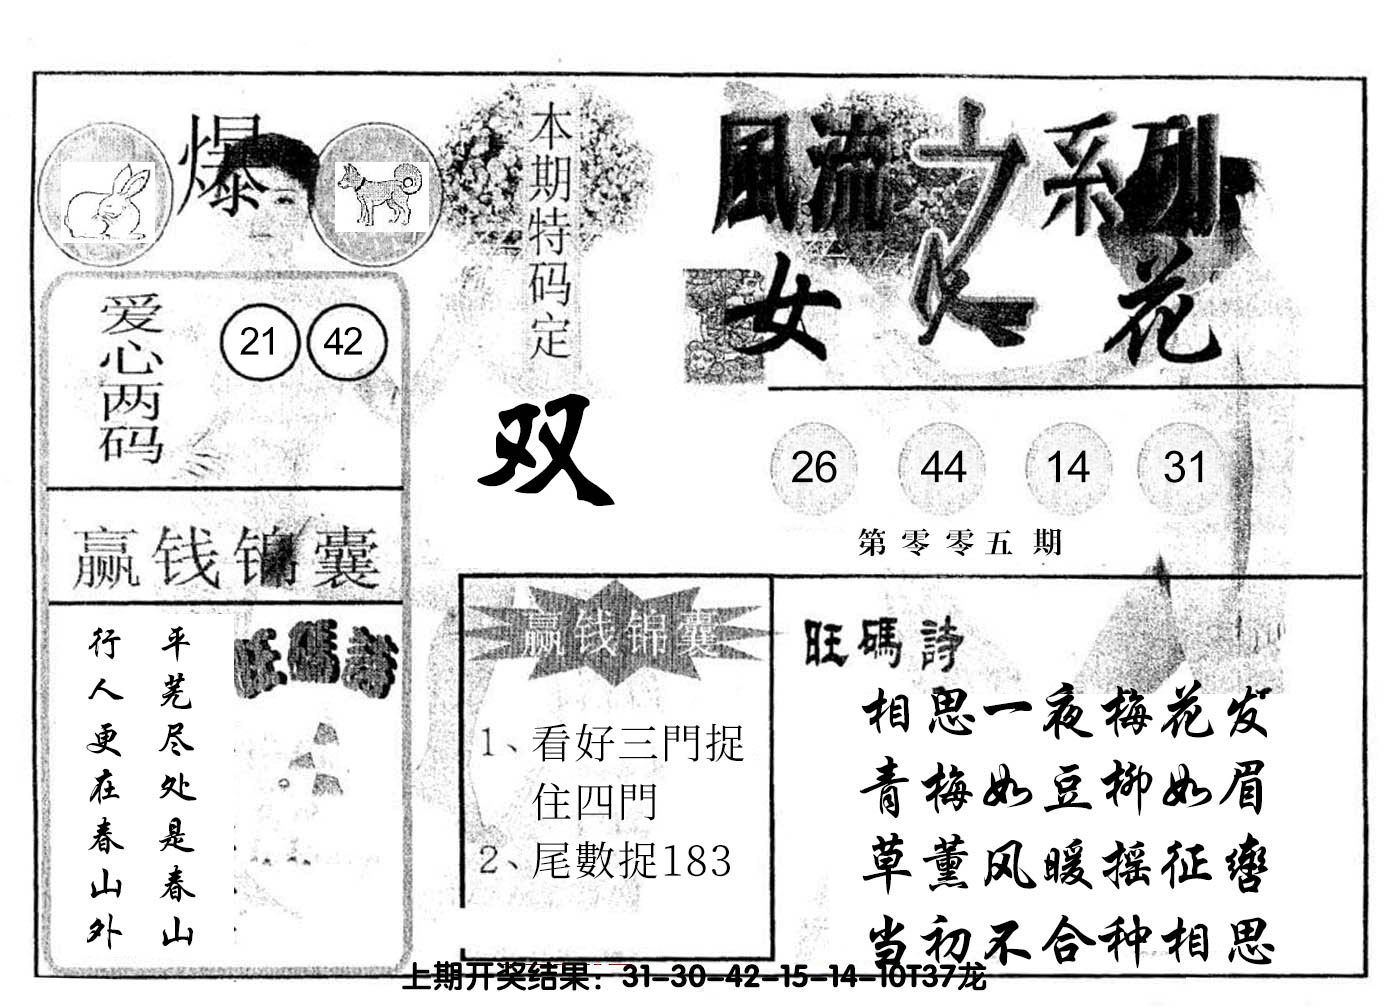 爆
本期特码定
双
風流之系列
女人花
爱心两码
21 42
26 44 14 31
第零零五期
赢钱锦囊
旺碼詩
平芜尽处是春山
行人更在春山外
赢钱锦囊
1、看好三門捉
住四門
2、尾數捉183
旺碼詩
相思一夜梅花发
青梅如豆柳如眉
草薰风暖摇征辔
当初不合种相思
上期开奖结果：31-30-42-15-14-10T37龙